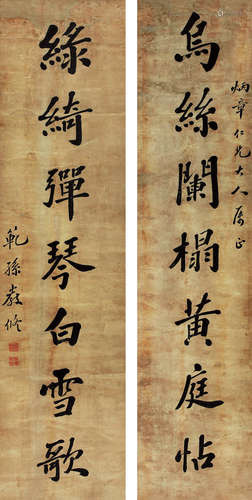 炳章仁兄大人属正
烏絲闌榻黃庭帖
綠綺彈琴白雪歌
範孫嚴修